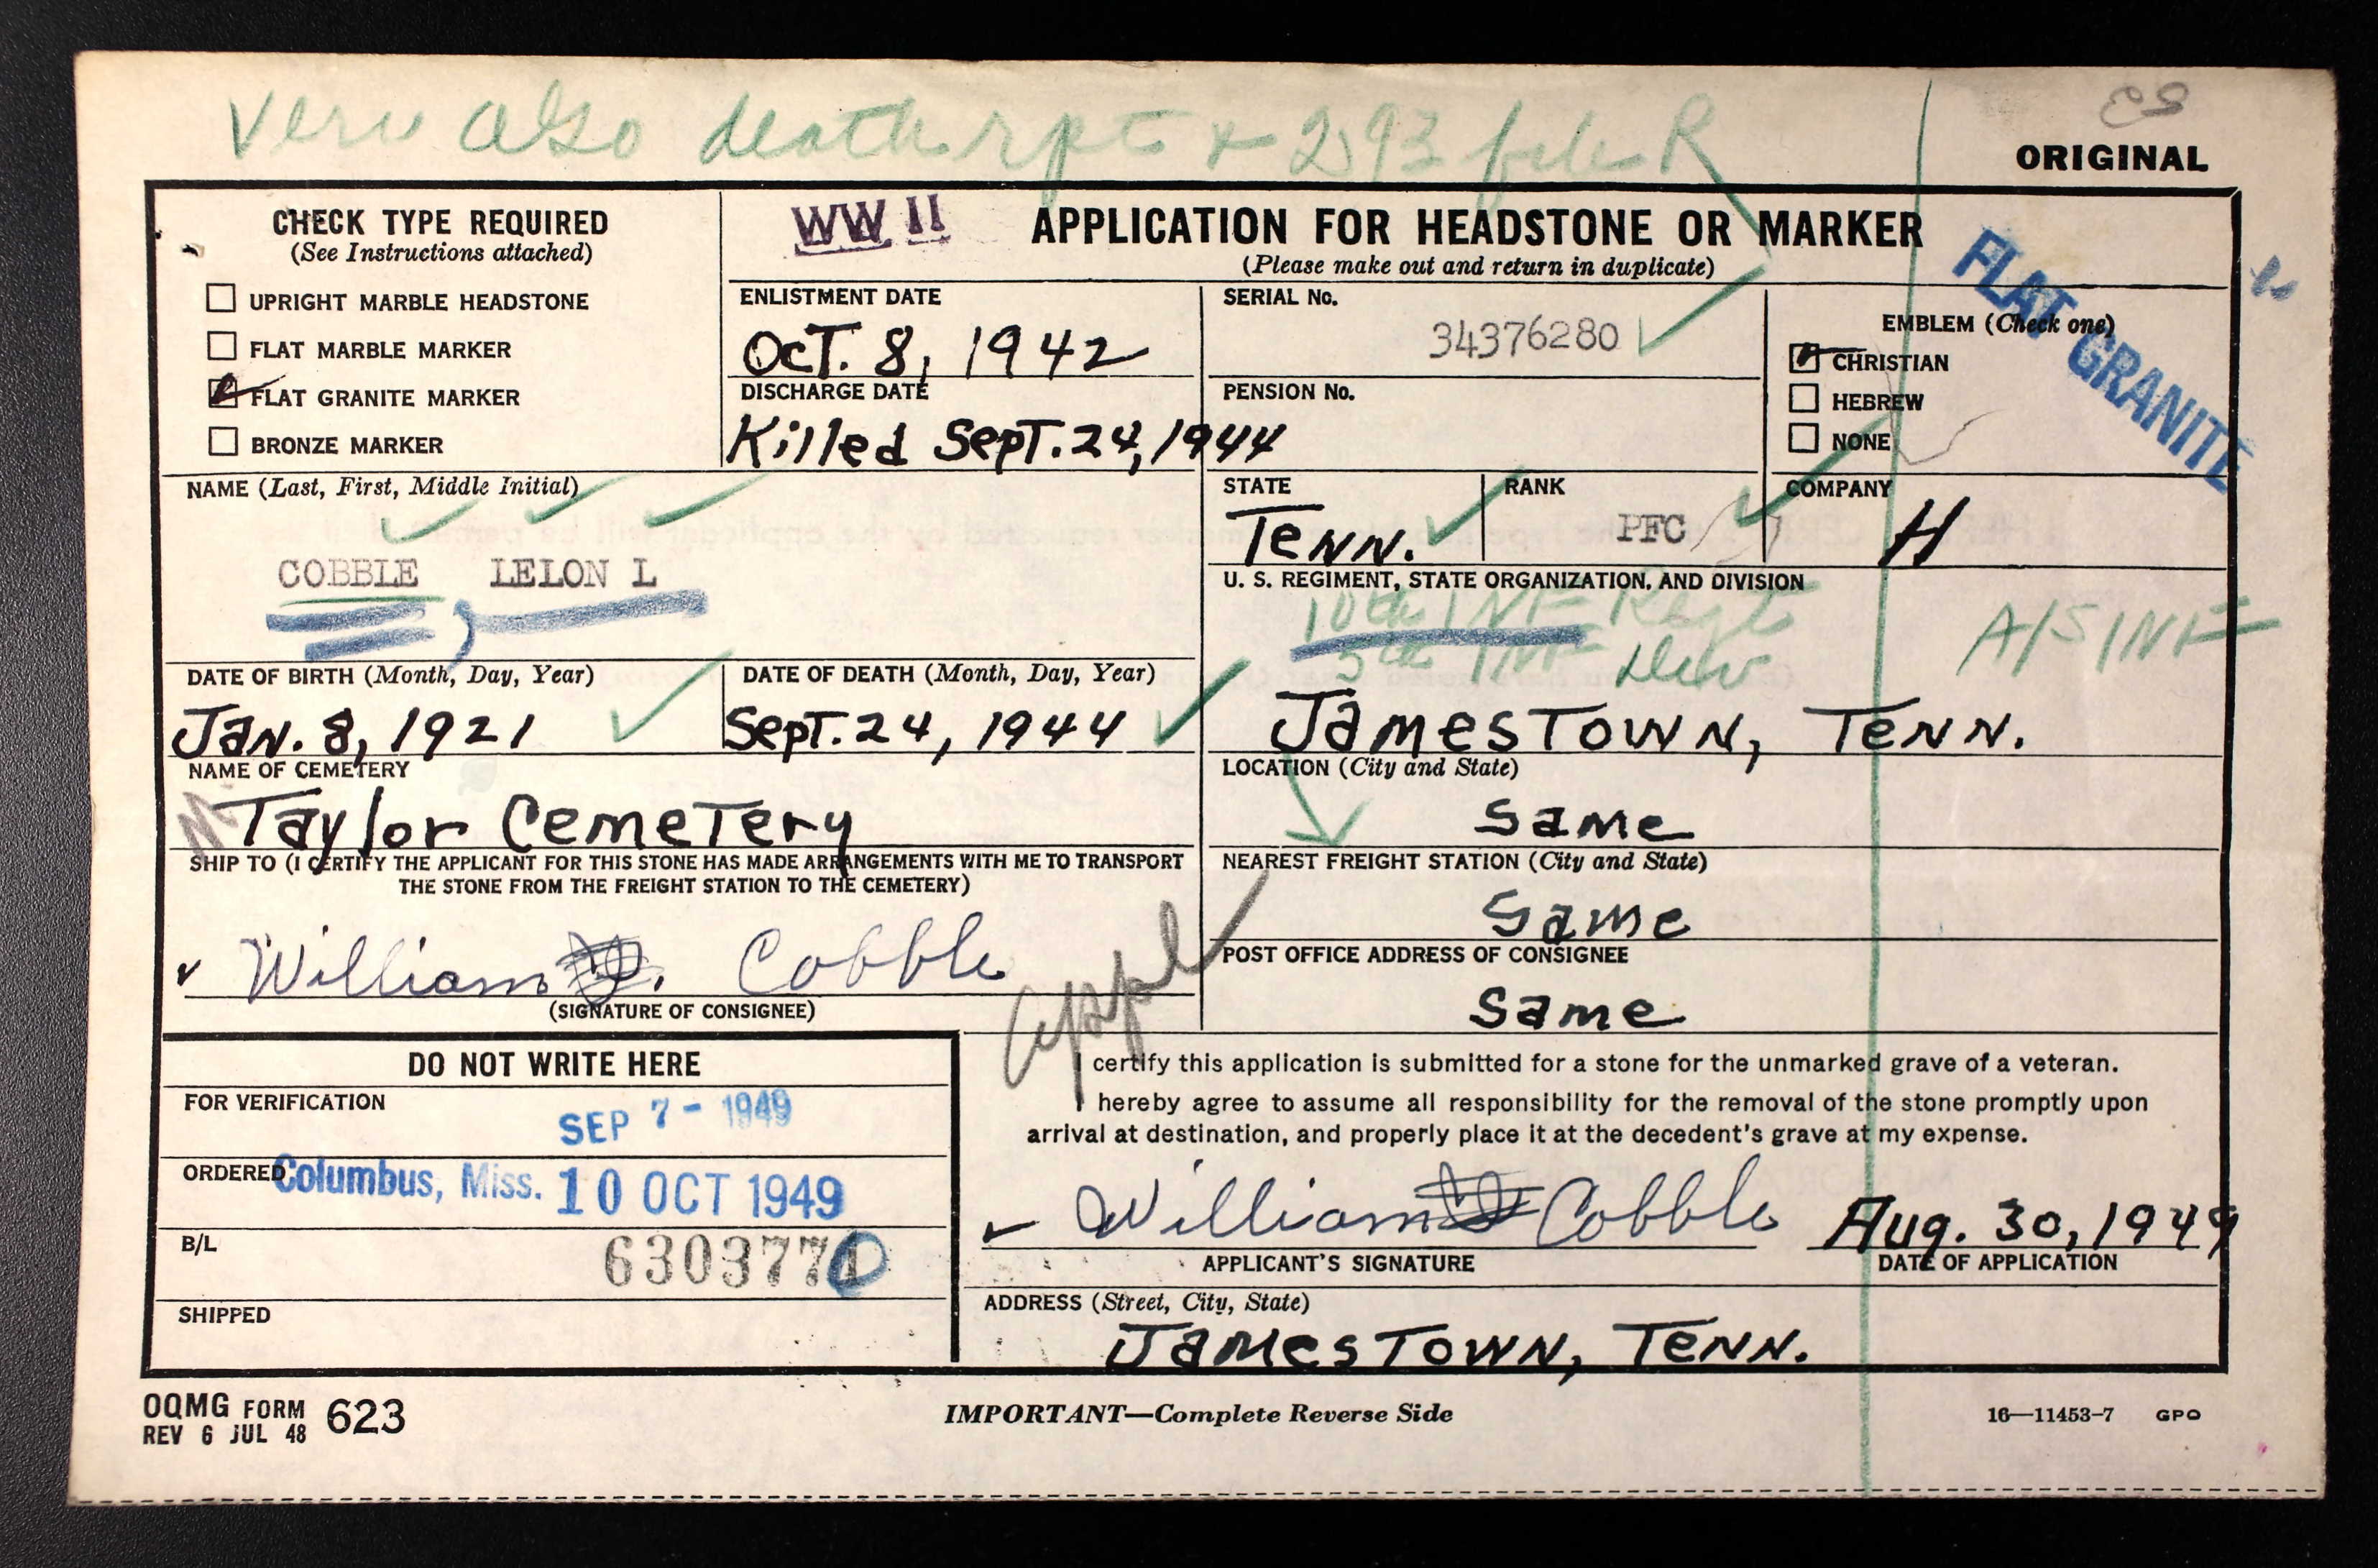 Veri also death rpt + 293 file R
ORIGINAL
CHECK TYPE REQUIRED
(See Instructions attached)
UPRIGHT MARBLE HEADSTONE
FLAT MARBLE MARKER
FLAT GRANITE MARKER
BRONZE MARKER
WW II
APPLICATION FOR HEADSTONE OR MARKER
(Please make out and return in duplicate)
FLAT GRANITE
ENLISTMENT DATE
Oct. 8, 1942
SERIAL No.
34376280
EMBLEM (Check one)
CHRISTIAN
HEBREW
NONE
DISCHARGE DATE
Killed Sept. 24, 1944
PENSION No.
NAME (Last, First, Middle Initial)
COBBLE, LELON L
STATE
Tenn.
RANK
PFC
COMPANY
H
U. S. REGIMENT, STATE ORGANIZATION, AND DIVISION
10th INF Regt
5th INF Div
A/5 INF
DATE OF BIRTH (Month, Day, Year)
Jan. 8, 1921
DATE OF DEATH (Month, Day, Year)
Sept. 24, 1944
Jamestown, Tenn.
NAME OF CEMETERY
Taylor Cemetery
LOCATION (City and State)
Same
SHIP TO (I CERTIFY THE APPLICANT FOR THIS STONE HAS MADE ARRANGEMENTS WITH ME TO TRANSPORT
THE STONE FROM THE FREIGHT STATION TO THE CEMETERY)
NEAREST FREIGHT STATION (City and State)
Same
William Cobble
(SIGNATURE OF CONSIGNEE)
appl
POST OFFICE ADDRESS OF CONSIGNEE
Same
DO NOT WRITE HERE
FOR VERIFICATION
SEP 7 - 1949
ORDERED
Columbus, Miss. 10 OCT 1949
B/L
SHIPPED
I certify this application is submitted for a stone for the unmarked grave of a veteran.
I hereby agree to assume all responsibility for the removal of the stone promptly upon
arrival at destination, and properly place it at the decedent's grave at my expense.
William Cobble
Aug. 30, 1949
APPLICANT'S SIGNATURE
DATE OF APPLICATION
ADDRESS (Street, City, State)
Jamestown, Tenn.
OQMG FORM 623
REV 6 JUL 48
IMPORTANT—Complete Reverse Side
16—11453-7 GPO